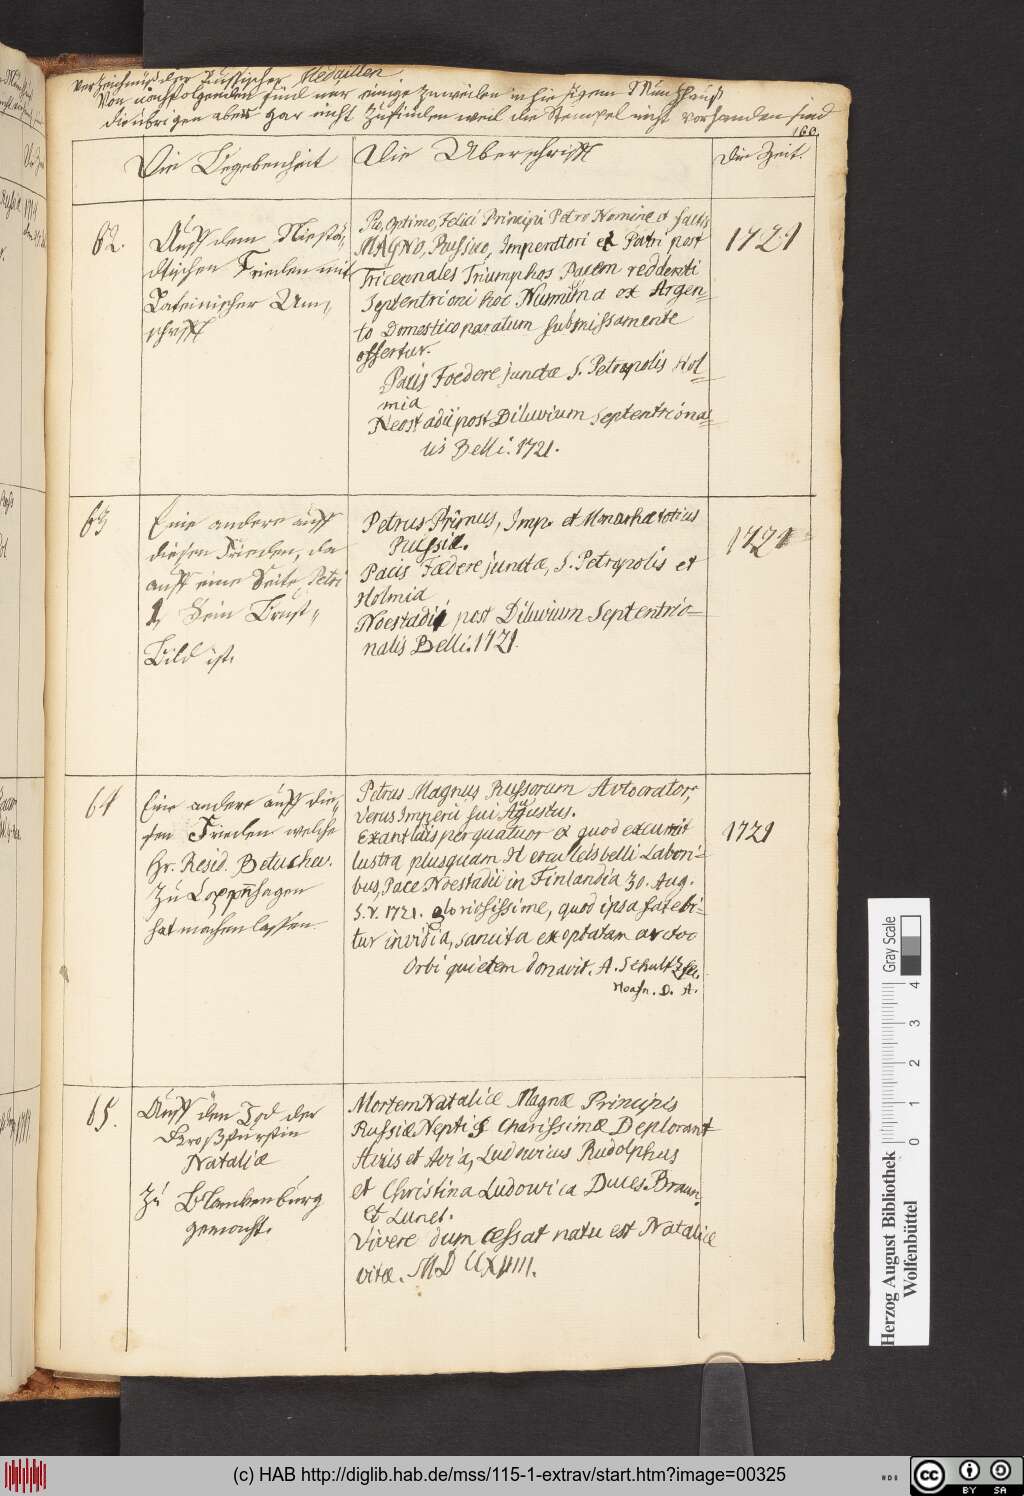 Verzeichnüs der Rußischer Medaillen.
Von nachfolgenden sind nur einige zuweilen in hiesigem Müntzhauß
die übrigen aber gar nicht zu finden weil die Stempel nicht vorhanden sind
160.
Die Begebenheit
Die Überschrifft
Die Zeit.
62.
Auff dem Niestä-
dtischen Frieden mit
Lateinischer Um-
schrifft
Pio, Optimo, Felici Principi Petro Nomine et factis
MAGNO, Russiae, Imperatori et Patri post
Tricennales Triumphos Pacem reddenti
Septentrioni hoc Numisma ex Argen-
to Domestico paratum submissamente
offertur.
Pacis Foedere junctæ S. Petropolis Hol-
mia
Neostadii post Diluvium Septentriona-
lis Belli. 1721.
1721
63
Eine andere auff
diesen Frieden, da
auff eine Seite Petri
I, sein Brust-
Bild ist.
Petrus Primus, Imp. et Monarcha totius
Russiæ.
Pacis Fædere junctæ, S. Petropolis et
Holmia
Noestadii post Diluvium Septentrio-
nalis Belli. 1721.
1721
64
Eine andere auff die-
sen Frieden welche
Hr. Resid. Betuchev.
zu Coppenhagen
hat machen lassen.
Petrus Magnus Russorum Avtocrator,
Verus Imperii sui Augustus.
Exantlatis per quatuor & quod excurrit
lustra plusquam Herculeis belli Labori-
bus, Pace Noestadii in Finlandia 30. Aug.
S.V. 1721. gloriosissime, quod ipsa fatebi-
tur invidia, sancita exoptatam arctoo
Orbi quietem donavit. A. Schultz fec.
Hoafn. D. A.
1721
65.
Auff den Tod der
Großfürstin
Nataliæ
zu Blankenburg
gemacht.
Mortem Nataliæ Magnæ Principis
Russiæ Neptis Charissimæ Deplorant
Avus et Avia, Ludovicus Rudolphus
et Christina Ludovica Duces. Braun.
et Lunel.
Vivere dum cessat natu est Nataliæ
vitæ.
(c) HAB http://diglib.hab.de/mss/115-1-extrav/start.htm?image=00325
Herzog August Bibliothek
Wolfenbüttel
0 1 2 3 4
Gray Scale
cc BY SA